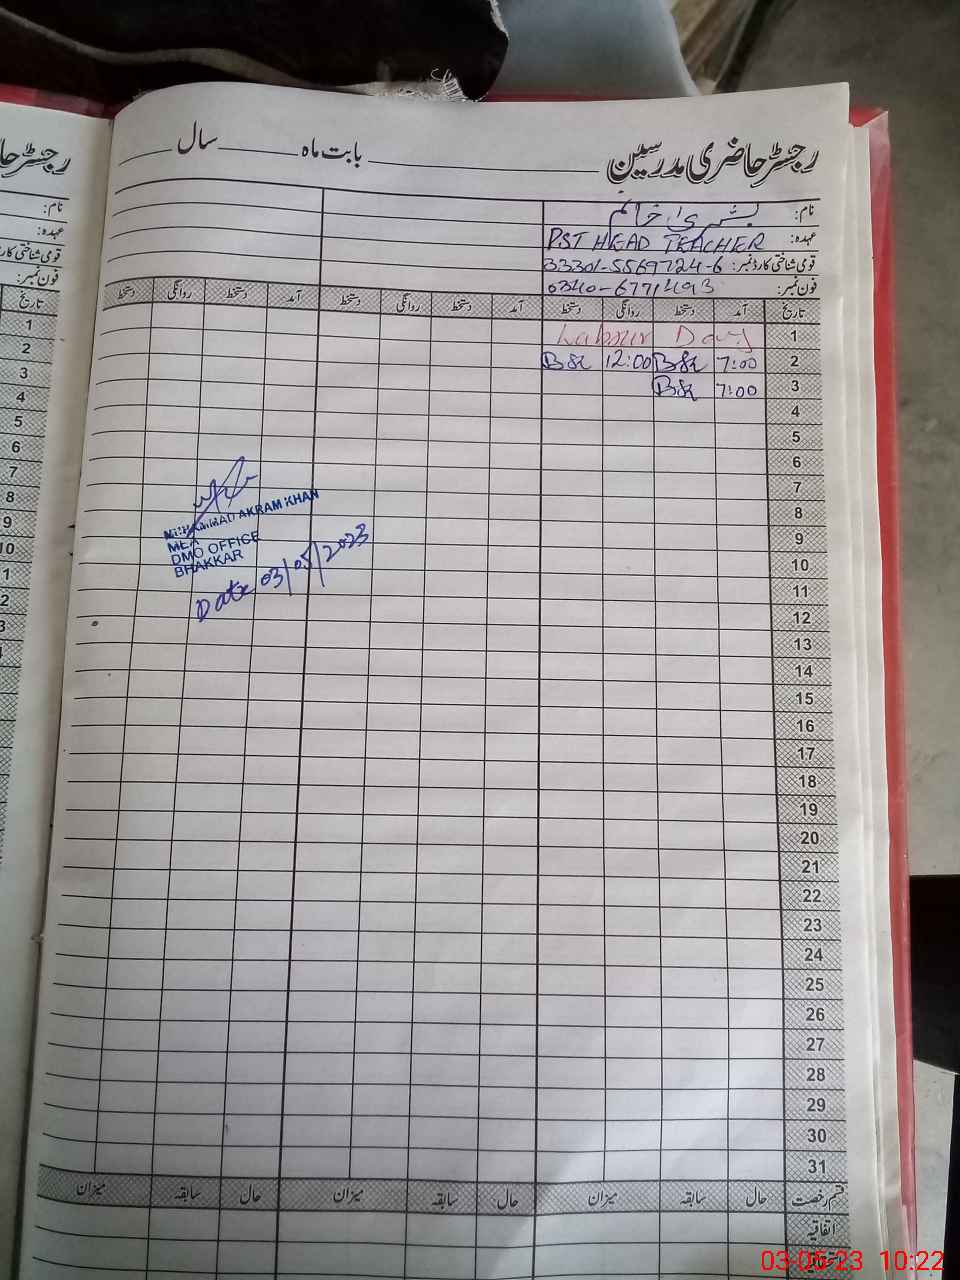 رجسٹر حاضری مدرسین ــــــ بابت ماہ ــــــ سال ــــــ
نام: بشریٰ خانم
عہدہ: PST HEAD TEACHER
قومی شناختی کارڈ نمبر: 33301-5569724-6
فون نمبر: 0340-6771493
تاریخ آمد دستخط روانگی دستخط آمد دستخط روانگی دستخط آمد دستخط روانگی دستخط
1 Labour Day
2 7:00 Bsk 12:00 Bsk
3 7:00 Bsk
4
5
6
7
8
9
10
11
12
13
14
15
16
17
18
19
20
21
22
23
24
25
26
27
28
29
30
31
MUHAMMAD AKRAM KHAN
MEA
DMO OFFICE
BHAKKAR
Date 03/05/2023
قسم رخصت حال سابقہ میزان حال سابقہ میزان حال سابقہ میزان
اتفاقیہ
رجسٹر حا
نام:
عہدہ:
قومی شناختی کارڈ
فون نمبر:
تاریخ
1
2
3
4
5
6
7
8
9
10
03-05-23 10:22